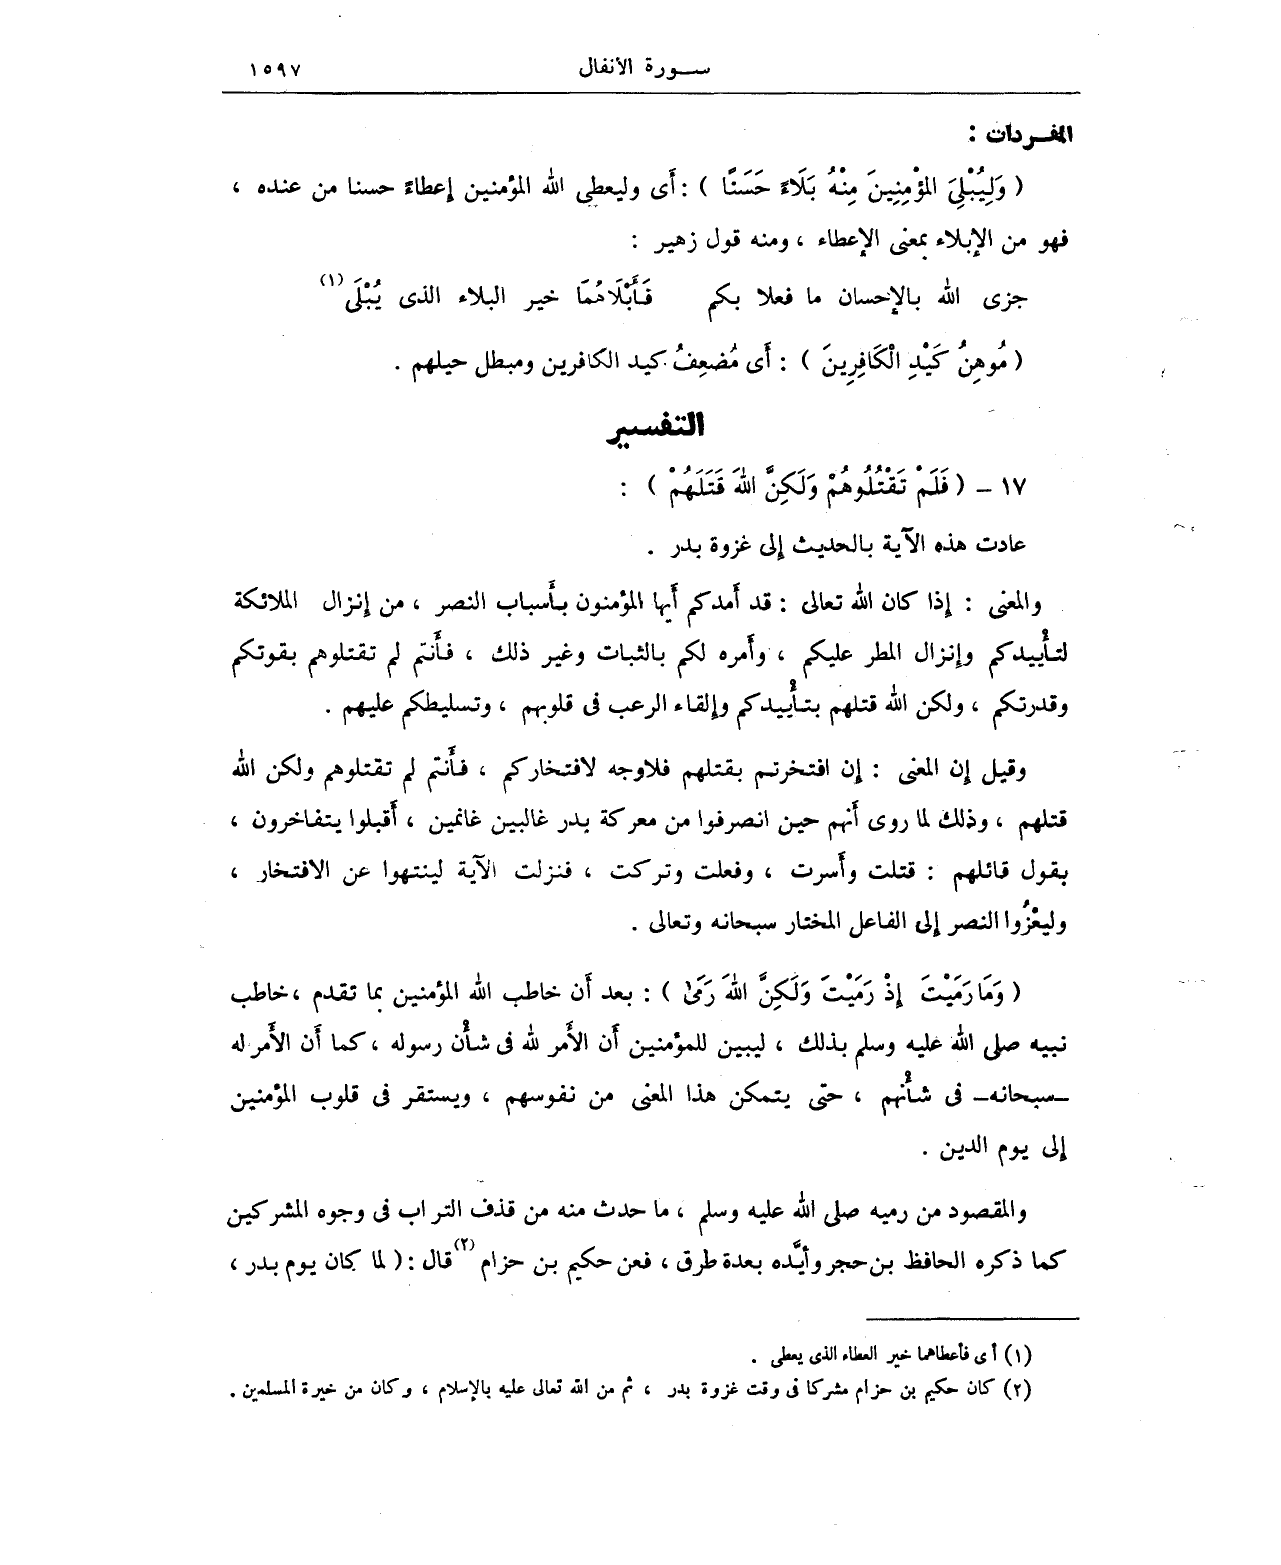 سـورة الأنفال ١٥٩٧
المفـردات :
( وَلِيُبْلِىَ المؤْمِنِينَ مِنْهُ بَلَاءً حَسَنًا ) : أَى وليعطى الله المؤمنين إعطاءً حسنا من عنده ،
فهو من الإبلاء بمعنى الإعطاء ، ومنه قول زهير :
جزى الله بالإحسان ما فعلا بكم فَأَبْلَاهُمَا خير البلاء الذى يُبْلَى (١)
( مُوهِنُ كَيْدِ الْكَافِرِينَ ) : أَى مُضعِفُ كيد الكافرين ومبطل حيلهم .
التفسير
١٧ – ( فَلَمْ تَقْتُلُوهُمْ وَلَكِنَّ اللهَ قَتَلَهُمْ ) :
عادت هذه الآية بالحديث إلى غزوة بدر .
والمعنى : إذا كان الله تعالى : قد أَمدكم أَيها المؤمنون بأَسباب النصر ، من إنزال الملائكة
لتأْييدكم وإنزال المطر عليكم ، وأَمره لكم بالثبات وغير ذلك ، فأَنتم لم تقتلوهم بقوتكم
وقدرتكم ، ولكن الله قتلهم بتأْييدكم وإلقاء الرعب فى قلوبهم ، وتسليطكم عليهم .
وقيل إن المعنى : إن افتخرتم بقتلهم فلاوجه لافتخاركم ، فأَنتم لم تقتلوهم ولكن الله
قتلهم ، وذلك لما روى أَنهم حين انصرفوا من معركة بدر غالبين غانمين ، أَقبلوا يتفاخرون ،
بقول قائلهم : قتلت وأَسرت ، وفعلت وتركت ، فنزلت الآية لينتهوا عن الافتخار ،
وليعْزُوا النصر إلى الفاعل المختار سبحانه وتعالى .
( وَمَا رَمَيْتَ إِذْ رَمَيْتَ وَلَكِنَّ اللهَ رَمَىٰ ) : بعد أَن خاطب الله المؤمنين بما تقدم ، خاطب
نبيه صلى الله عليه وسلم بذلك ، ليبين للمؤمنين أَن الأَمر لله فى شأْن رسوله ، كما أَن الأَمر له
–سبحانه– فى شأْنهم ، حتى يتمكن هذا المعنى من نفوسهم ، ويستقر فى قلوب المؤمنين
إلى يوم الدين .
والمقصود من رميه صلى الله عليه وسلم ، ما حدث منه من قذف التراب فى وجوه المشركين
كما ذكره الحافظ بن حجر وأَيَّده بعدة طرق ، فعن حكيم بن حزام (٢) قال : ( لما كان يوم بدر ،
(١) أى فأعطاهما خير العطاء الذى يعطى .
(٢) كان حكيم بن حزام مشركا فى وقت غزوة بدر ، ثم من الله تعالى عليه بالإسلام ، وكان من خيرة المسلمين .